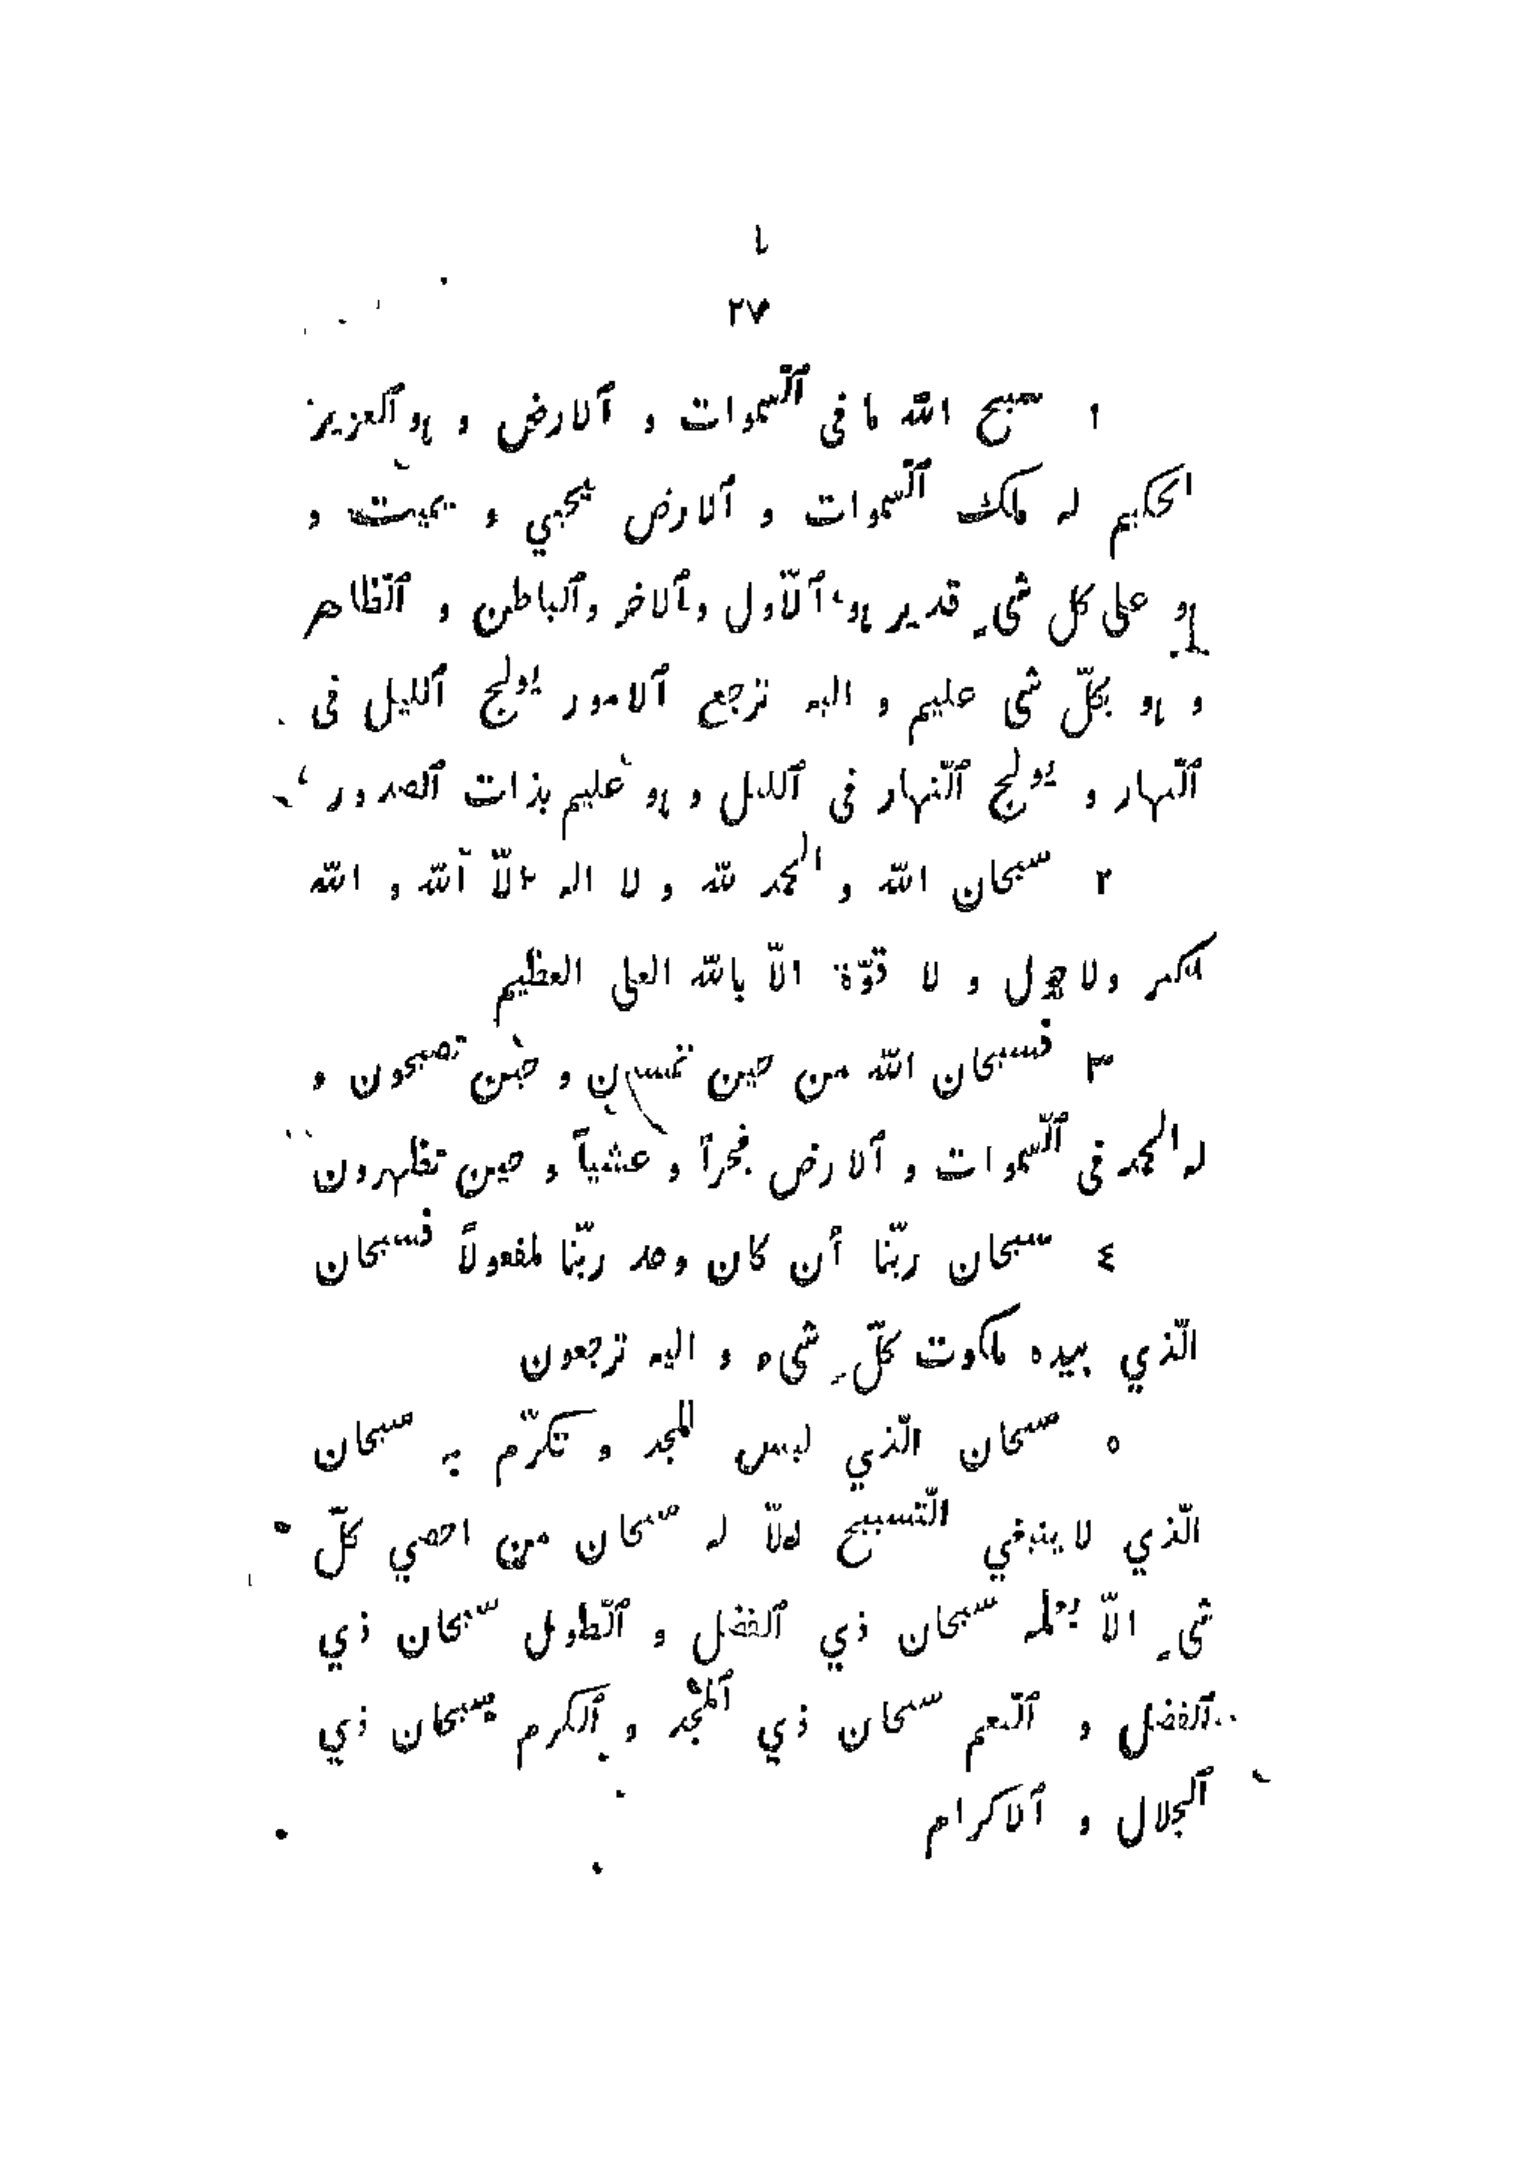 ٢٧
١ سبح الله ما فى ٱلسّموات و ٱلارض و هو ٱلعزيز
الحكيم له ملك ٱلسّموات و ٱلارض يحيي و يميت و
هو على كل شىءٍ قدير هو ٱلاّول وٱلاخر وٱلباطن و ٱلظّاهر
و هو بكلّ شى عليم و اليه ترجع ٱلامور يولج ٱلليل فى
ٱلنّهار و يولج ٱلنّهار فى ٱلليل و هو عليم بذات ٱلصدور
٢ سبحان الله و الحمد لله و لا اله الاّ ٱلله و الله
اكبر ولا حول و لا قوّة الاّ بالله العلى العظيم
٣ فسبحان الله من حين تمسون و حين تصبحون و
له الحمد فى ٱلسّموات و ٱلارض فجراً و عشياً و حين تظهرون
٤ سبحان ربّنا أن كان وعد ربّنا لمفعولاً فسبحان
الّذي بيده ملكوت كلّ شىء و اليه ترجعون
٥ سبحان الّذي لبس المجد و تكرّم به سبحان
الّذي لا ينبغي التّسبيح الاّ له سبحان من احصي كلّ
شىءٍ الاّ بعلمه سبحان ذي ٱلفضل و ٱلطّول سبحان ذي
ٱلفضل و ٱلنّعم سبحان ذي ٱلمجد و ٱلكرم سبحان ذي
ٱلجلال و ٱلاكرام